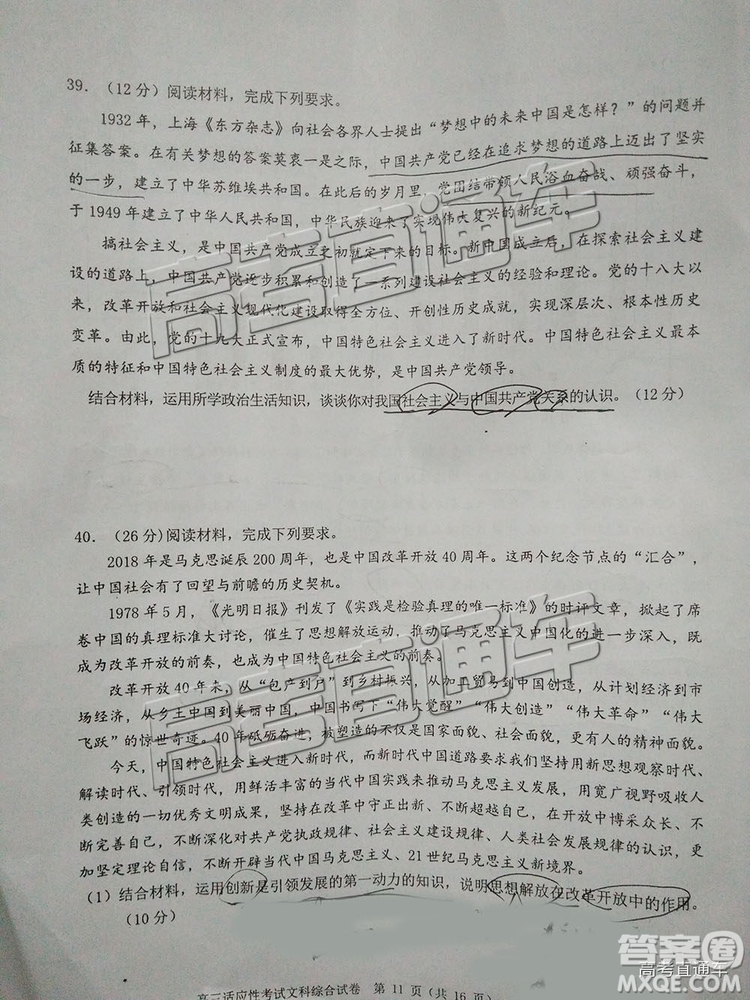 39．（12 分）阅读材料，完成下列要求。
1932 年，上海《东方杂志》向社会各界人士提出“梦想中的未来中国是怎样？”的问题并
征集答案。在有关梦想的答案莫衷一是之际，中国共产党已经在追求梦想的道路上迈出了坚实
的一步，建立了中华苏维埃共和国。在此后的岁月里，党团结带领人民浴血奋战、顽强奋斗，
于 1949 年建立了中华人民共和国，中华民族迎来了实现伟大复兴的新纪元。
搞社会主义，是中国共产党成立之初就定下来的目标。新中国成立后，在探索社会主义建
设的道路上，中国共产党逐步积累和创造了一系列建设社会主义的经验和理论。党的十八大以
来，改革开放和社会主义现代化建设取得全方位、开创性历史成就，实现深层次、根本性历史
变革。由此，党的十九大正式宣布，中国特色社会主义进入了新时代。中国特色社会主义最本
质的特征和中国特色社会主义制度的最大优势，是中国共产党领导。
结合材料，运用所学政治生活知识，谈谈你对我国社会主义与中国共产党关系的认识。（12 分）
40．（26 分)阅读材料，完成下列要求。
2018 年是马克思诞辰 200 周年，也是中国改革开放 40 周年。这两个纪念节点的“汇合”，
让中国社会有了回望与前瞻的历史契机。
1978 年 5 月，《光明日报》刊发了《实践是检验真理的唯一标准》的时评文章，掀起了席
卷中国的真理标准大讨论，催生了思想解放运动，推动了马克思主义中国化的进一步深入，既
成为改革开放的前奏，也成为中国特色社会主义的前奏。
改革开放 40 年来，从“包产到户”到乡村振兴，从加工贸易到中国创造，从计划经济到市
场经济，从乡土中国到美丽中国，中国书写下“伟大觉醒”“伟大创造”“伟大革命”“伟大
飞跃”的惊世奇迹。40 年砥砺奋进，被塑造的不仅是国家面貌、社会面貌，更有人的精神面貌。
今天，中国特色社会主义进入新时代，而新时代的中国道路要求我们坚持用新思想观察时代、
解读时代、引领时代，用鲜活丰富的当代中国实践来推动马克思主义发展，用宽广视野吸收人
类创造的一切优秀文明成果，坚持在改革中守正出新、不断超越自己，在开放中博采众长、不
断完善自己，不断深化对共产党执政规律、社会主义建设规律、人类社会发展规律的认识，更
加坚定理论自信，不断开辟当代中国马克思主义、21 世纪马克思主义新境界。
（1）结合材料，运用创新是引领发展的第一动力的知识，说明思想解放在改革开放中的作用。
（10 分）
高三适应性考试文科综合试卷 第 11 页（共 16 页）
高考直通车
高考直通车
答案圈
高考直通车
MXQE.COM